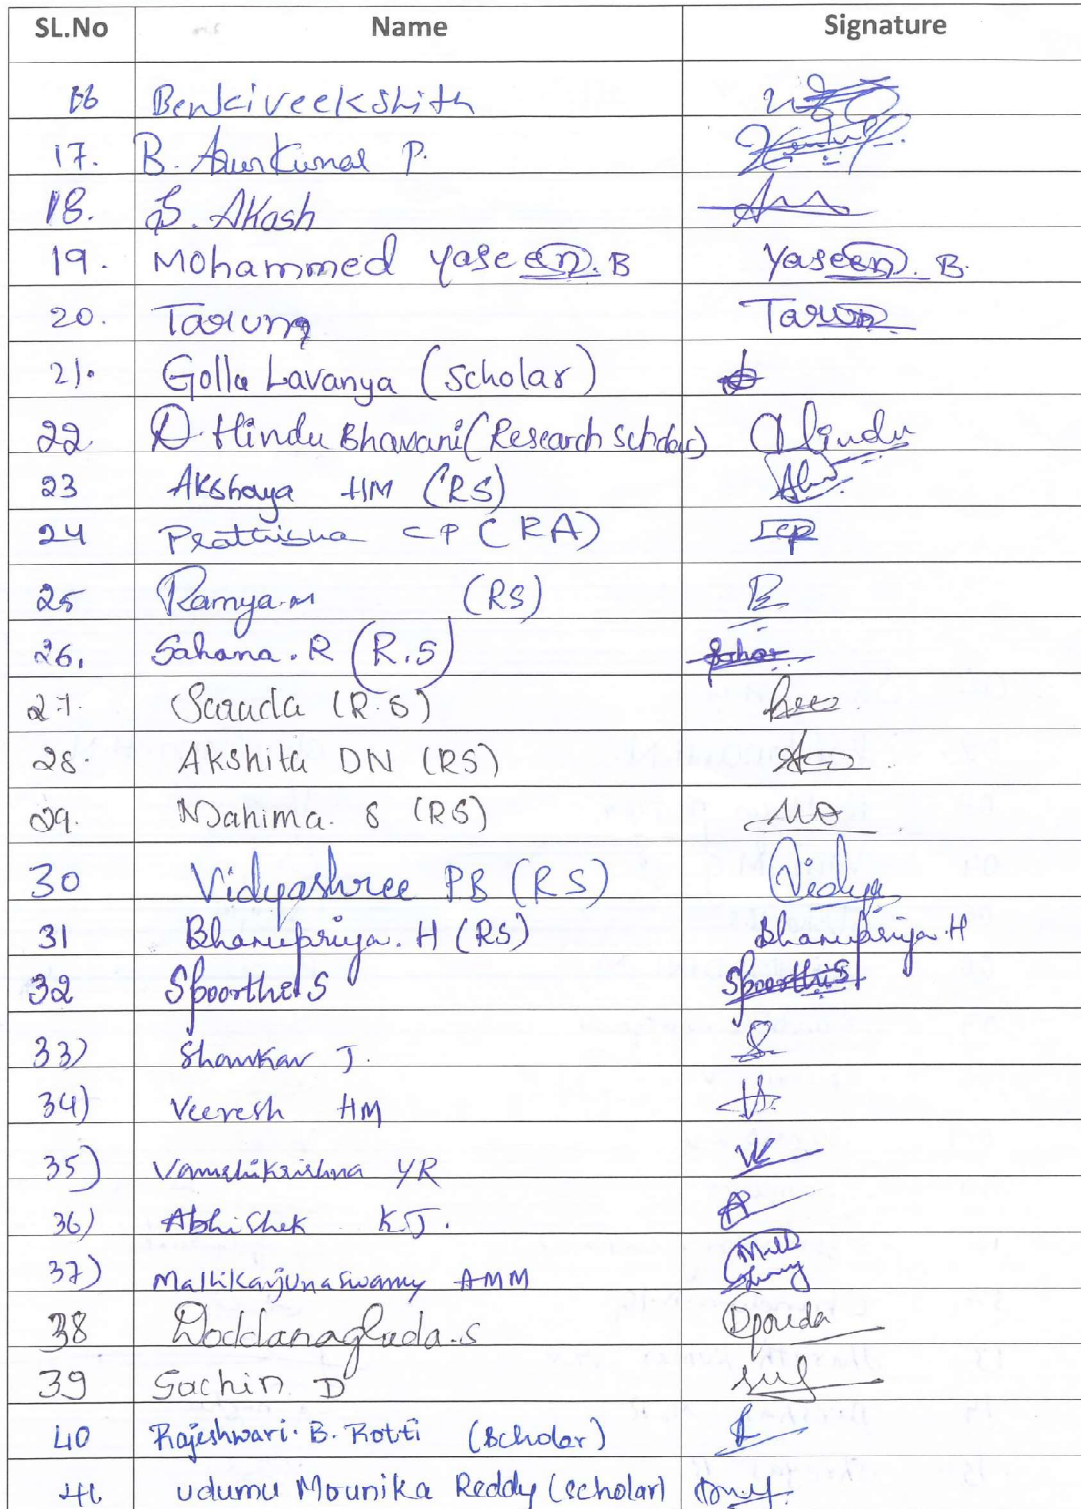 SL.No Name Signature
16 Benkiveekshith
17. B. Arunkumar P.
18. S. Akash
19. Mohammed Yaseen. B Yaseen. B.
20. Tarun Tarun
21. Golla Lavanya (Scholar)
22 D. Hindu Bhavani (Research Scholar) Hindu
23 Akshaya HM (RS)
24 CP (RA)
25 Ramya.m (RS)
26. Sahana. R (R.S)
27. (R.S)
28. Akshita DN (RS)
29. Mahima. S (RS)
30 Vidyashree PB (RS) Vidya
31 Bhanupriya. H (RS) Bhanupriya. H
32 Spoorthi S Spoorthi S
33) Shankar J.
34) Veeresh HM
35) Vamshikrishna YR
36) Abhishek KJ.
37) Mallikarjunaswamy AMM
38 Doddanagouda.S Dgouda
39 Sachin D
40 Rajeshwari. B. Rotti (Scholar)
41. Udumu Mounika Reddy (Scholar)